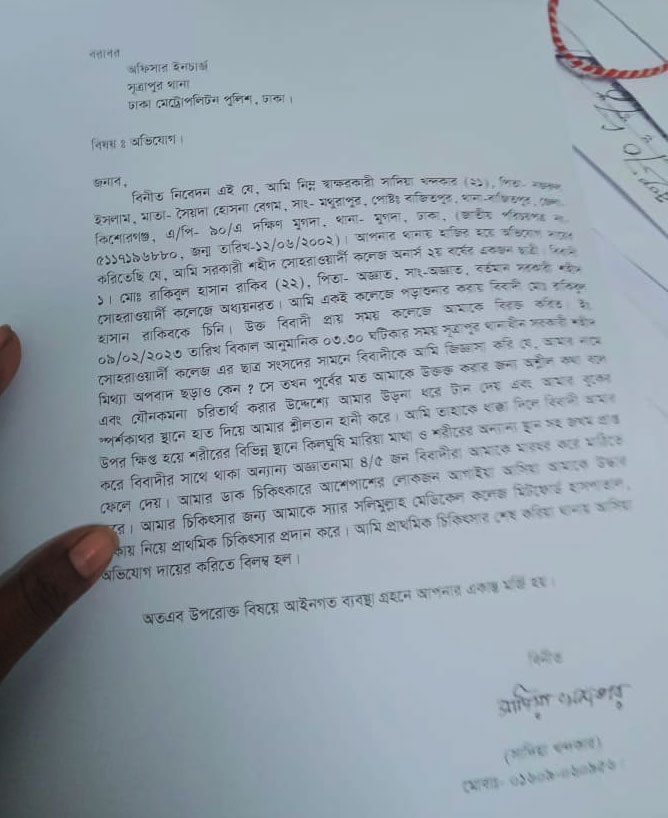 বরাবর
অফিসার ইনচার্জ
সূত্রাপুর থানা
ঢাকা মেট্রোপলিটন পুলিশ, ঢাকা।
বিষয় ঃ অভিযোগ।
জনাব,
বিনীত নিবেদন এই যে, আমি নিম্ন স্বাক্ষরকারী সাদিয়া খন্দকার (২১), পিতা-
ইসলাম, মাতা- সৈয়দা হোসনা বেগম, সাং- মথুরাপুর, পোষ্টঃ বাজিতপুর, থানা-বাজিতপুর, জেলা-
কিশোরগঞ্জ, এ/পি- ৯০/এ দক্ষিণ মুগদা, থানা- মুগদা, ঢাকা, (জাতীয় পরিচয়পত্র নং-
৫১১৭১৯৬৮৮০, জন্ম তারিখ-১২/০৬/২০০২)। আপনার থানায় হাজির হয়ে অভিযোগ দায়ের
করিতেছি যে, আমি সরকারী শহীদ সোহরাওয়ার্দী কলেজ অনার্স ২য় বর্ষের একজন ছাত্রী। বিবাদী
১। মোঃ রাকিবুল হাসান রাকিব (২২), পিতা- অজ্ঞাত, সাং-অজ্ঞাত, বর্তমান সরকারী শহীদ
সোহরাওয়ার্দী কলেজে অধ্যায়নরত। আমি একই কলেজে পড়াশুনার করায় বিবাদী মোঃ রাকিবুল
হাসান রাকিবকে চিনি। উক্ত বিবাদী প্রায় সময় কলেজে আমাকে বিরক্ত করিত। ইং
০৯/০২/২০২৩ তারিখ বিকাল আনুমানিক ০৩.৩০ ঘটিকার সময় সূত্রাপুর থানাধীন সরকারী শহীদ
সোহরাওয়ার্দী কলেজ এর ছাত্র সংসদের সামনে বিবাদীকে আমি জিজ্ঞাসা করি যে, আমার নামে
মিথ্যা অপবাদ ছড়াও কেন ? সে তখন পূর্বের মত আমাকে উত্ত্যক্ত করার জন্য অশ্লীল কথা বলে
এবং যৌনকামনা চরিতার্থ করার উদ্দেশ্যে আমার উড়না ধরে টান দেয় এবং আমার বুকের
স্পর্শকাতর স্থানে হাত দিয়ে আমার শ্লীলতান হানী করে। আমি তাহাকে ধাক্কা দিলে বিবাদী আমার
উপর ক্ষিপ্ত হয়ে শরীরের বিভিন্ন স্থানে কিলঘুষি মারিয়া মাথা ও শরীরের অন্যান্য স্থান সহ জখম প্রাপ্ত
করে বিবাদীর সাথে থাকা অন্যান্য অজ্ঞাতনামা ৪/৫ জন বিবাদীরা আমাকে মারধর করে মাটিতে
ফেলে দেয়। আমার ডাক চিৎকারে আশেপাশের লোকজন আগাইয়া আসিয়া আমাকে উদ্ধার
করে। আমার চিকিৎসার জন্য আমাকে স্যার সলিমুল্লাহ মেডিকেল কলেজ মিটফোর্ড হাসপাতাল,
নিয়ে প্রাথমিক চিকিৎসার প্রদান করে। আমি প্রাথমিক চিকিৎসার শেষ করিয়া থানায় আসিয়া
অভিযোগ দায়ের করিতে বিলম্ব হল।
অতএব উপরোক্ত বিষয়ে আইনগত ব্যবস্থা গ্রহনে আপনার একান্ত মর্জি হয়।
বিনীত
সাদিয়া খন্দকার
(সাদিয়া খন্দকার)
মোবাঃ-